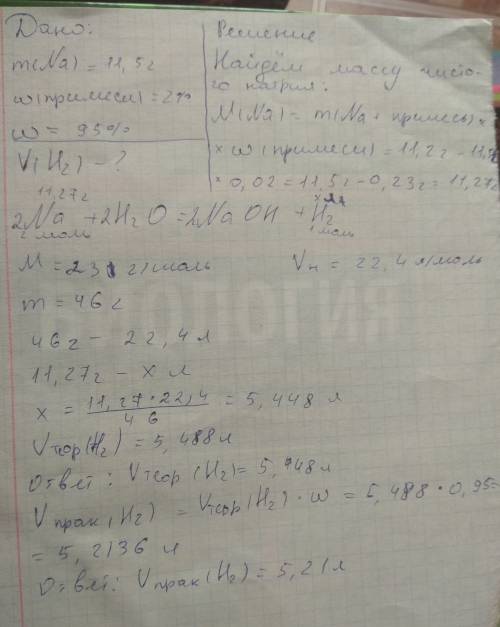 Дано:
m(Na) = 11,5г
w(примеси) = 2%
w = 95%
V(H₂) - ?
Решение
Найдём массу чисто-
го натрия:
M(Na) = m(Na + примесь) ×
× w(примеси) = 11,2г -
× 0,02 = 11,5г - 0,23г = 11,27г
11,27г x л
2Na + 2H₂O = 2NaOH + H₂
2 моль 1 моль
M = 23 г/моль Vн = 22,4 л/моль
m = 46 г
46г - 22,4 л
11,27г - x л
x = 11,27 · 22,4 / 46 = 5,448 л
Vтеор(H₂) = 5,488 л
Ответ: Vтеор(H₂) = 5,948 л
Vпрак(H₂) = Vтеор(H₂) · w = 5,488 · 0,95 =
= 5,2136 л
Ответ: Vпрак(H₂) = 5,21 л